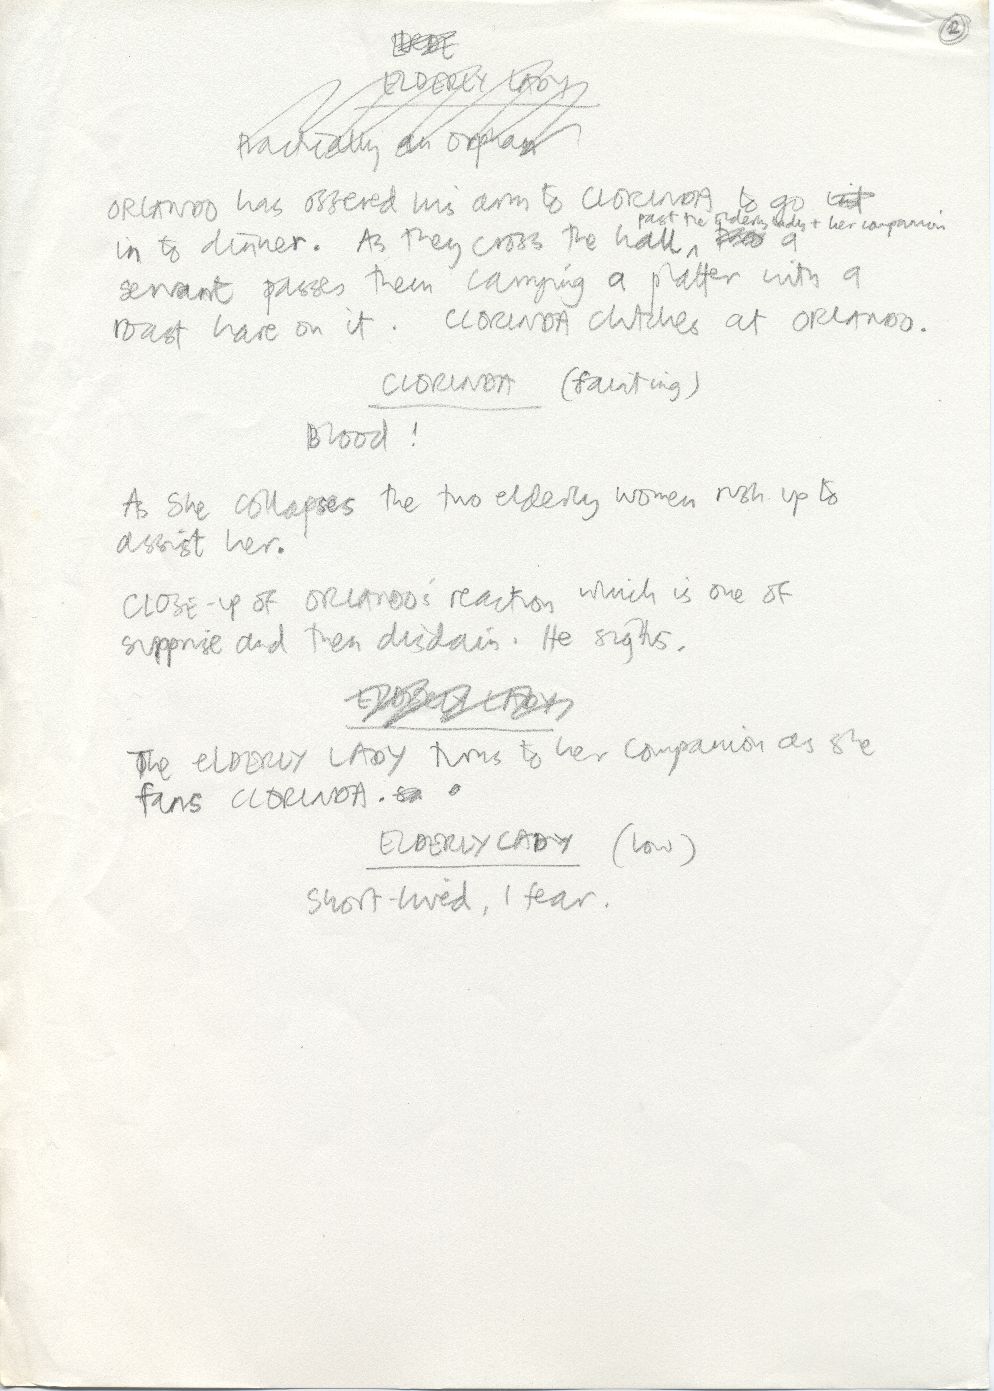 2
ELDERLY LADY
Practically an orphan
ORLANDO has offered his arm to CLORINDA to go
past the elderly lady + her companion
in to dinner. As they cross the hall ^ a
servant passes them carrying a platter with a
roast hare on it. CLORINDA clutches at ORLANDO.
CLORINDA (fainting)
Blood!
As she collapses the two elderly women rush up to
assist her.
CLOSE-up of ORLANDO's reaction which is one of
supprise and then disdain. He sighs.
ELDERLY LADY
The eLDERLY LADY turns to her companion as she
fans CLORINDA.
ELDERLY LADY (low)
Short-lived, I fear.